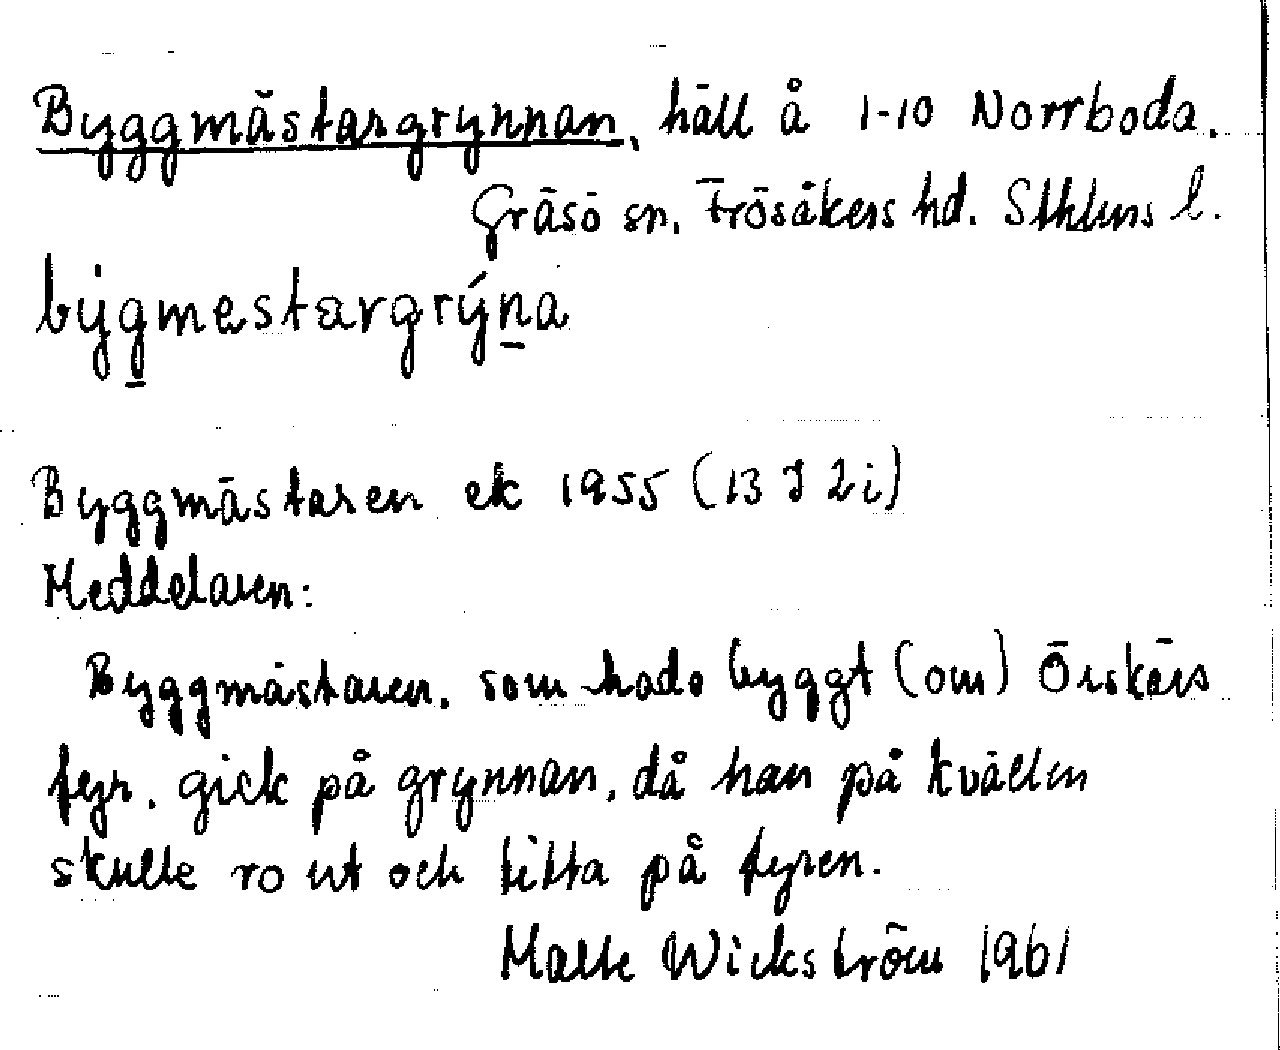 Byggmästargrynnan, häll å 1-10 Norrboda.
Gräsö sn, Frösåkers hd. Sthlms l.
býg̲mestargrýn̲a
Byggmästaren ek 1955 (13 J 2i)
Meddelaren:
Byggmästaren, som hade byggt (om) Örskärs
fyr, gick på grynnan, då han på kvällen
skulle ro ut och titta på fyren.
Malte Wickström 1961